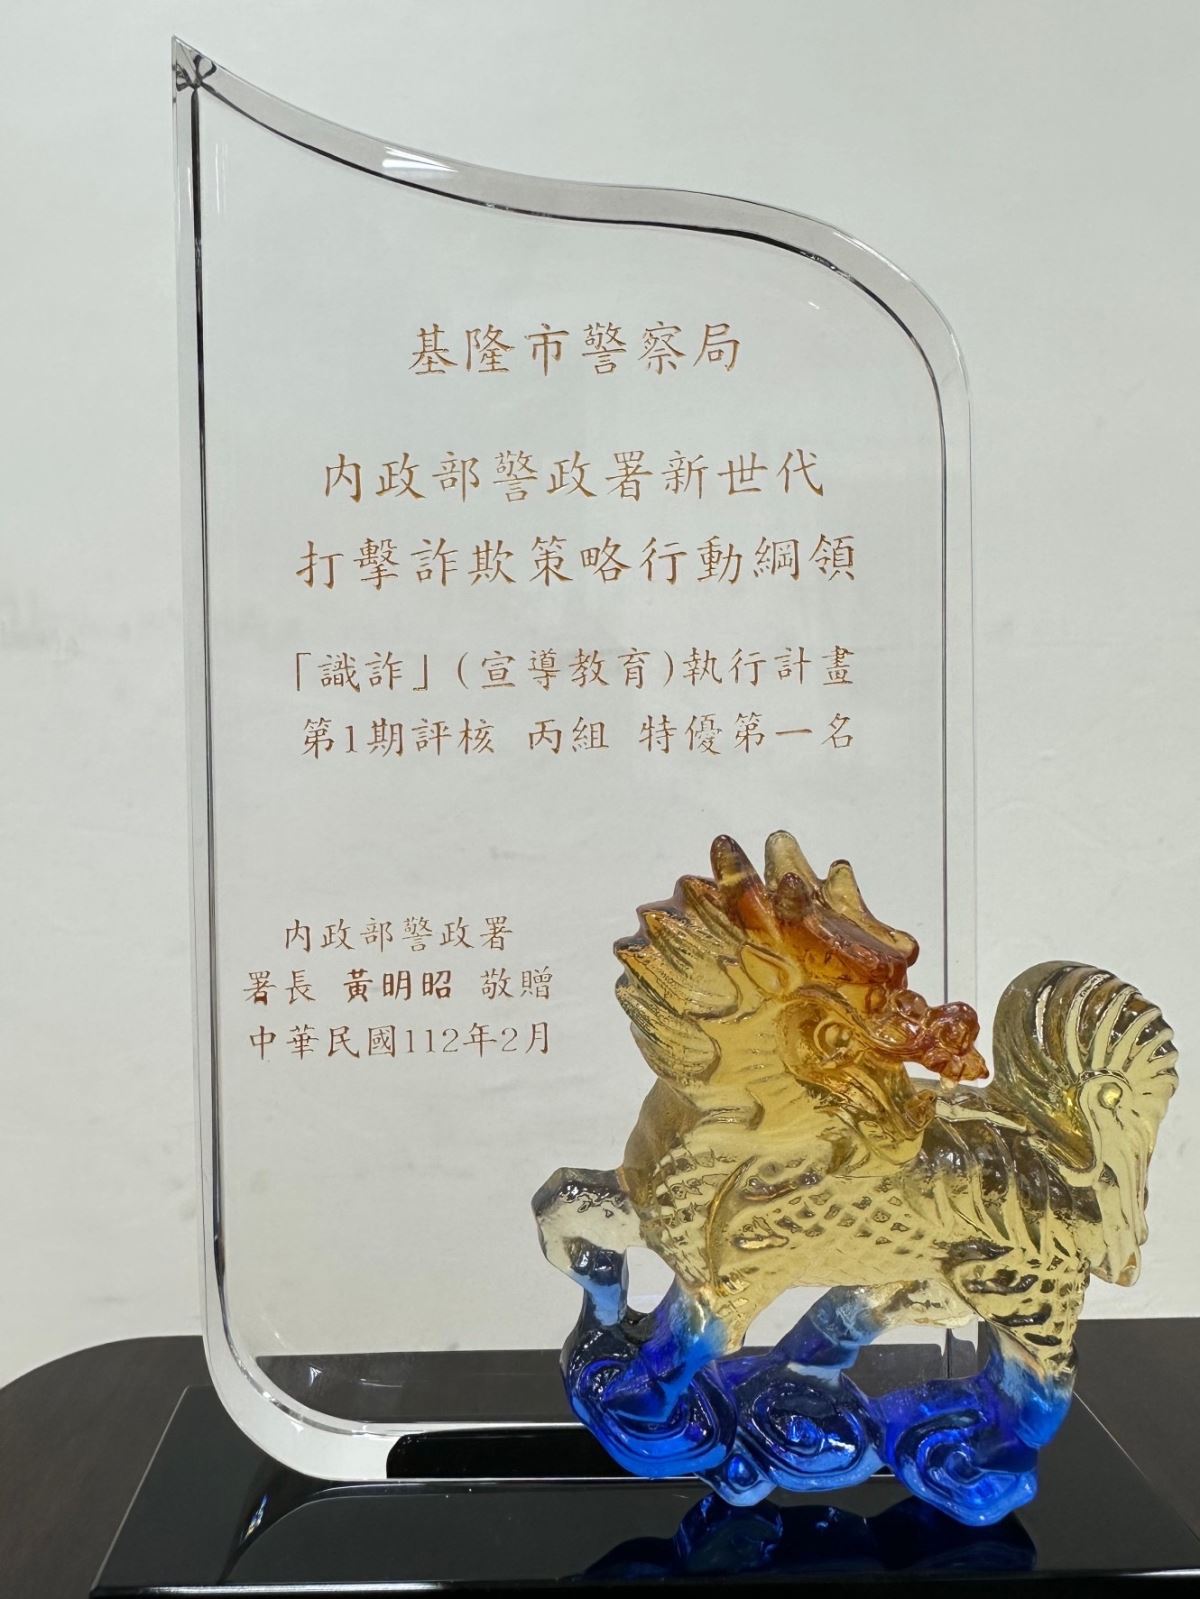 基隆市警察局
內政部警政署新世代
打擊詐欺策略行動綱領
「識詐」(宣導教育)執行計畫
第1期評核 丙組 特優第一名
內政部警政署
署長 黃明昭 敬贈
中華民國112年2月